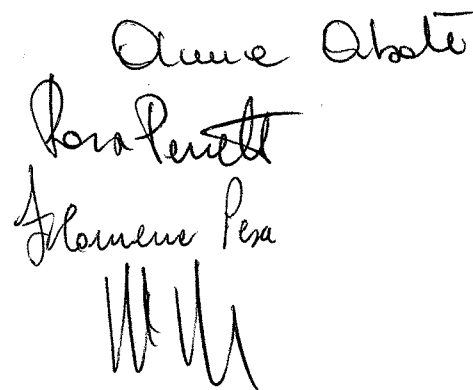 Anna Abate
Rosa Perrett
Filomena Pesa